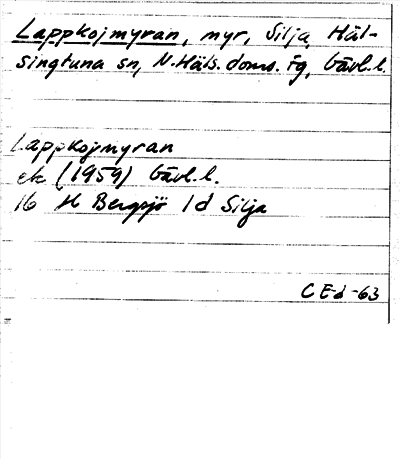 Lappkojmyran, myr, Silja, Häl-
singtuna sn, N.Häls. doms. fg, Gävl.l.
Lappkojmyran
ek (1959) Gävl.l.
16 H Bergsjö 1 d Silja
C Ed -63